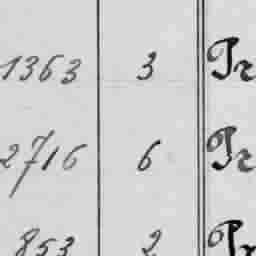 1363 3 Pr
2716 6 Pr
853 2 Pr